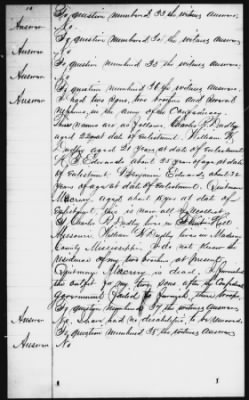 To question numbered 33 the witness answers.
Answer No
To question numbered 34 the witness answers
Answer No
To question numbered 35 the witness answers
Answer No
To question numbered 36 the witness answers.
Answer I had two sons, two brothers and several
nephews, in the army of the Confederacy.
Their names are as follows. Charles
aged 22 at date of enlistment. William
aged 21 years, at date of enlistment
Edwards about 25 years of age at date
of enlistment. Benjamin Edwards, about 32
years of age at date of enlistment. Quitman
aged about years at date of
enlistment, this is now all I recollect.
Charles lives in
Missouri. William lives in Madison
County Mississippi. I do not know the
residence of my two brothers, at present
Quitman is dead. I furnished
the outfit for my two sons after the Confederate
Government failed to furnish their troops.
To question numbered 37 the witness answers
Answer No. I have had no disabilities, to be removed.
To question numbered 38, the witness answers
Answer No